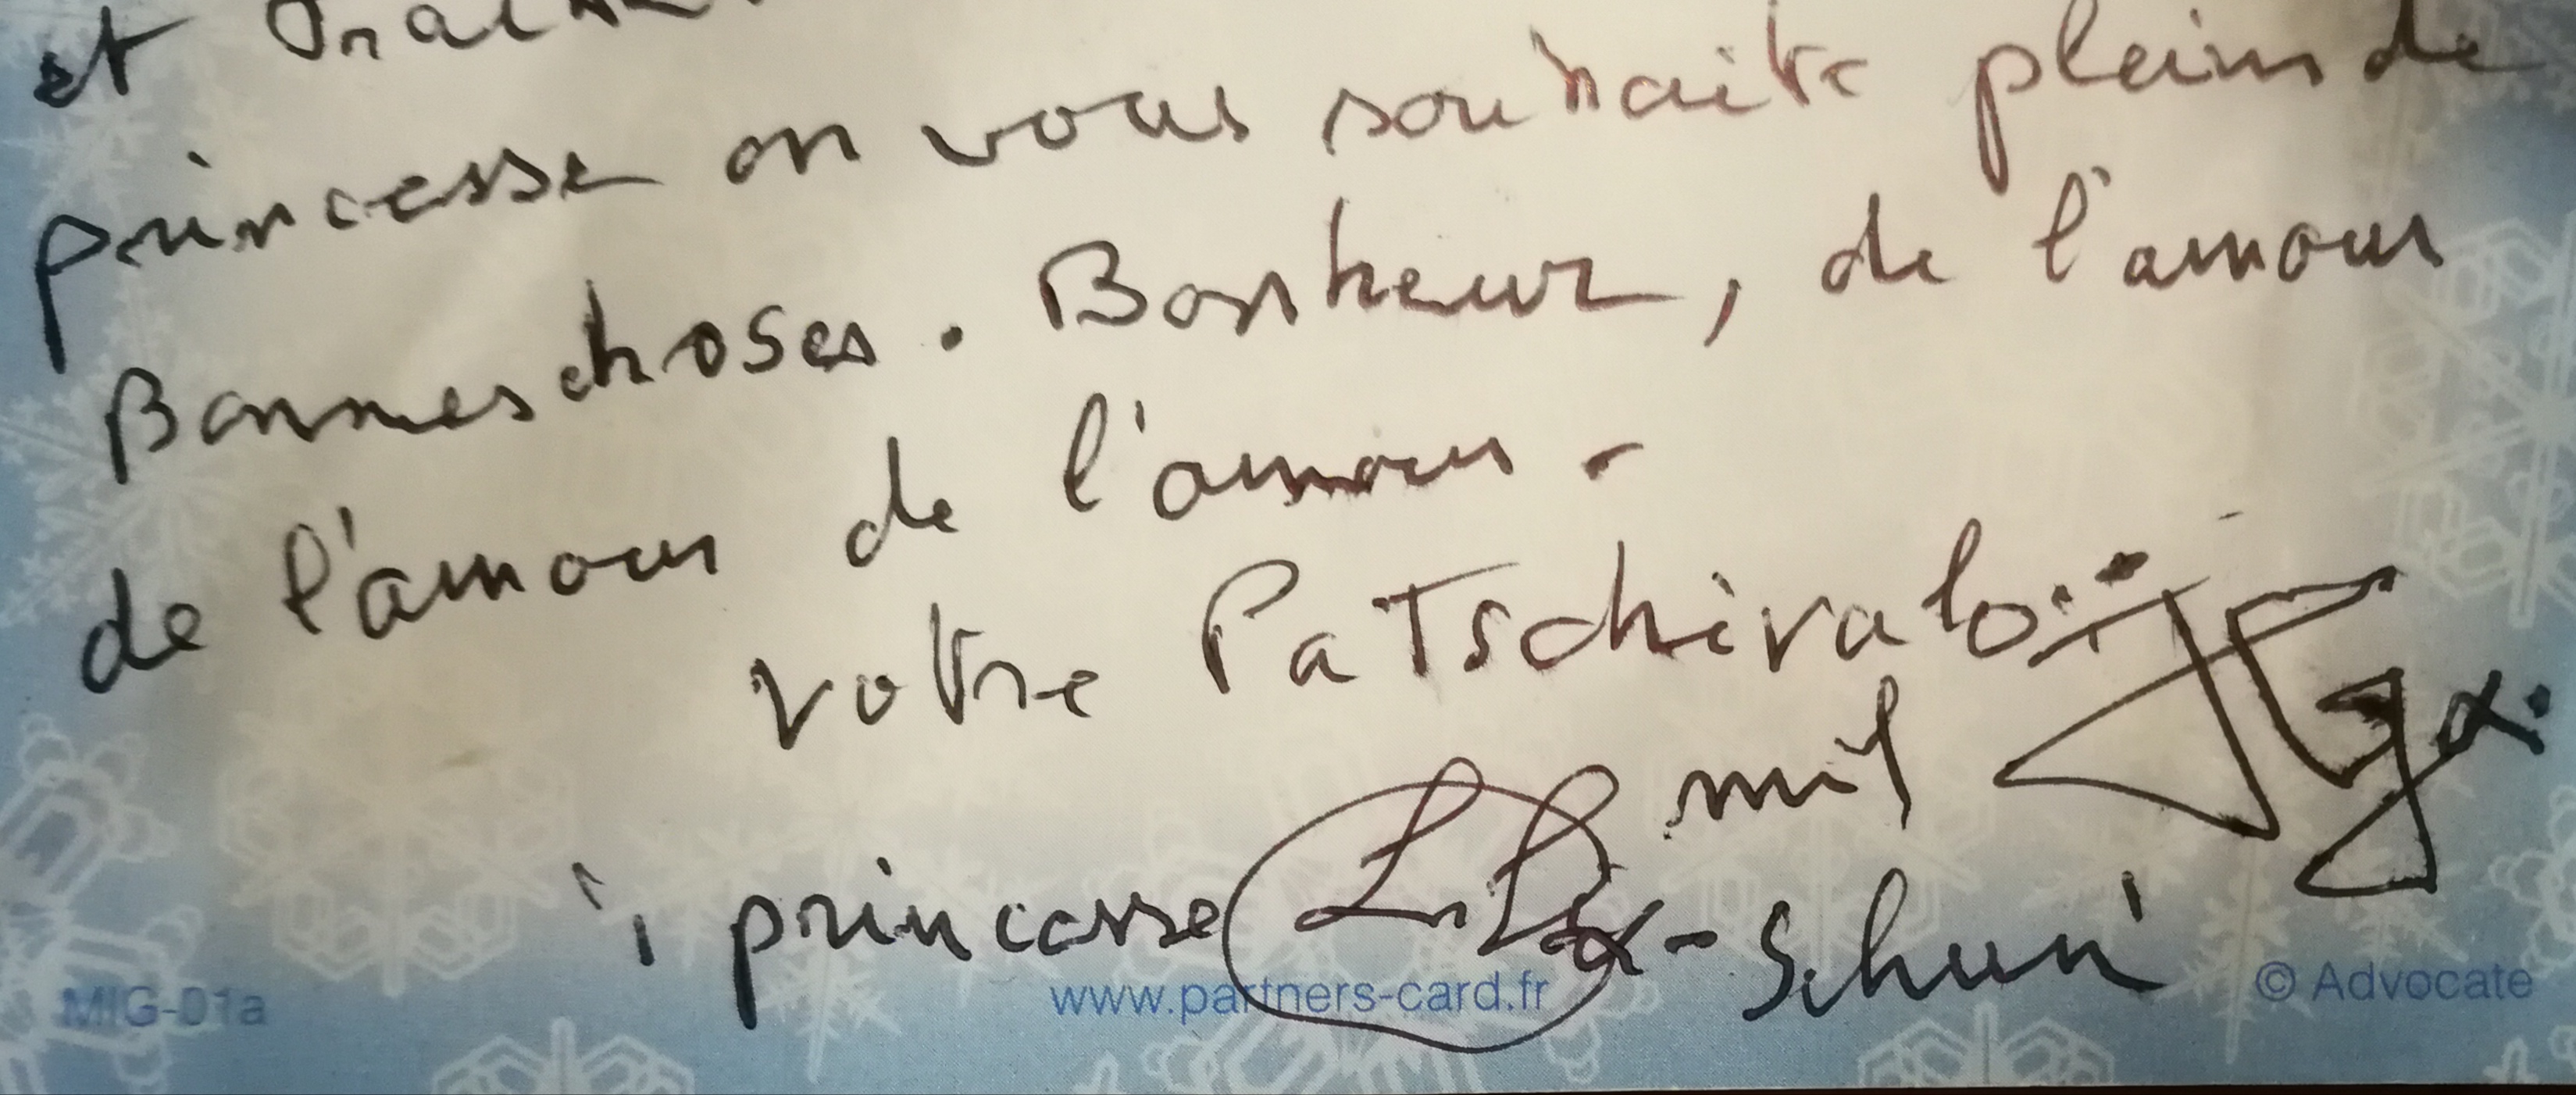 et
princesse on vous souhaite pleins de
Bonnes choses. Bonheur, de l'amour
de l'amour de l'amour.
votre Patschivalo
mit
i princesse Lila-Schuri
MIG-01a www.partners-card.fr © Advocate